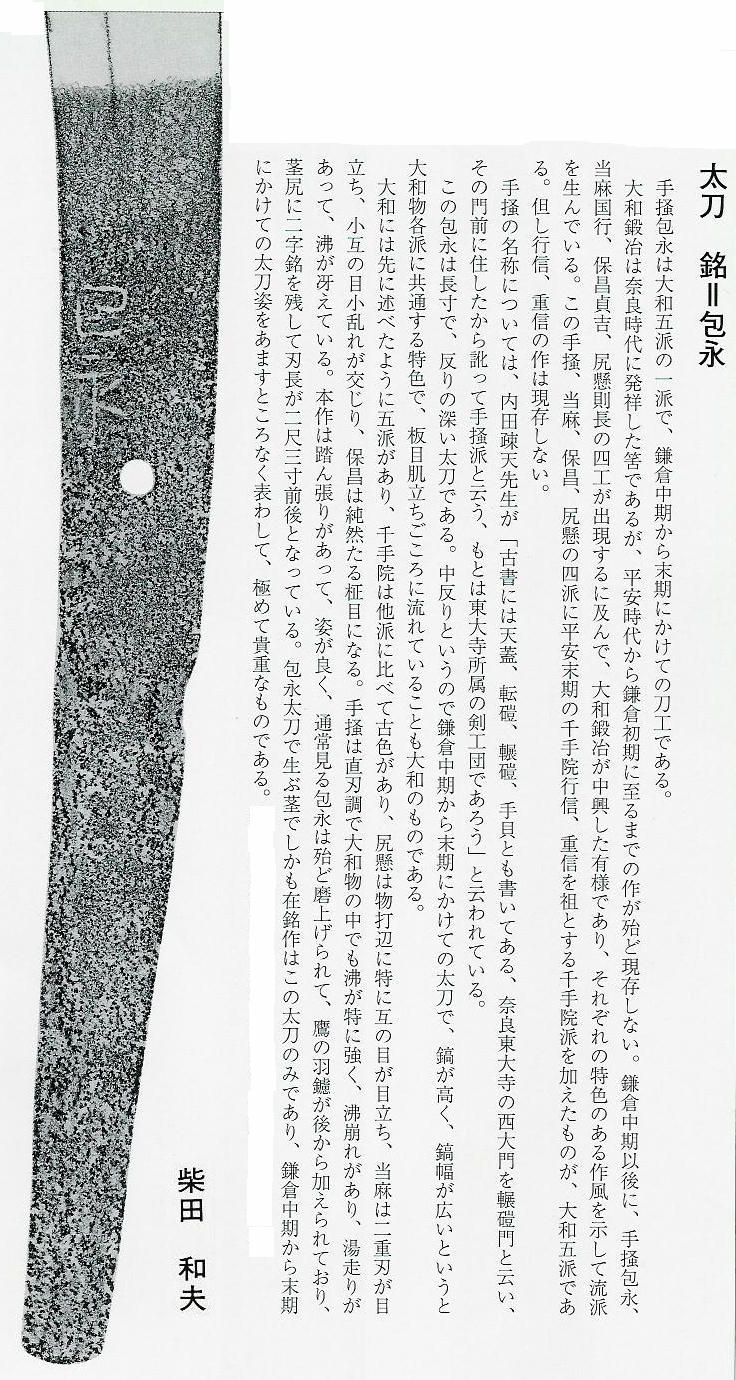 太刀　銘＝包永
手掻包永は大和五派の一派で、鎌倉中期から末期にかけての刀工である。
大和鍛冶は奈良時代に発祥した筈であるが、平安時代から鎌倉初期に至るまでの作が殆ど現存しない。鎌倉中期以後に、手掻包永、
当麻国行、保昌貞吉、尻懸則長の四工が出現するに及んで、大和鍛冶が中興した有様であり、それぞれの特色のある作風を示して流派
を生んでいる。この手掻、当麻、保昌、尻懸の四派に平安末期の千手院行信、重信を祖とする千手院派を加えたものが、大和五派であ
る。但し行信、重信の作は現存しない。
手掻の名称については、内田疎天先生が「古書には天蓋、転磑、輾磑、手貝とも書いてある、奈良東大寺の西大門を輾磑門と云い、
その門前に住したから訛って手掻派と云う、もとは東大寺所属の剣工団であろう」と云われている。
この包永は長寸で、反りの深い太刀である。中反りというので鎌倉中期から末期にかけての太刀で、鎬が高く、鎬幅が広いというと
大和物各派に共通する特色で、板目肌立ちごころに流れていることも大和のものである。
大和には先に述べたように五派があり、千手院は他派に比べて古色があり、尻懸は物打辺に特に互の目が目立ち、当麻は二重刃が目
立ち、小互の目小乱れが交じり、保昌は純然たる柾目になる。手掻は直刃調で大和物の中でも沸が特に強く、沸崩れがあり、湯走りが
あって、沸が冴えている。本作は踏ん張りがあって、姿が良く、通常見る包永は殆ど磨上げられて、鷹の羽鑢が後から加えられており、
茎尻に二字銘を残して刃長が二尺三寸前後となっている。包永太刀で生ぶ茎でしかも在銘作はこの太刀のみであり、鎌倉中期から末期
にかけての太刀姿をあますところなく表わして、極めて貴重なものである。
柴田　和夫
包永